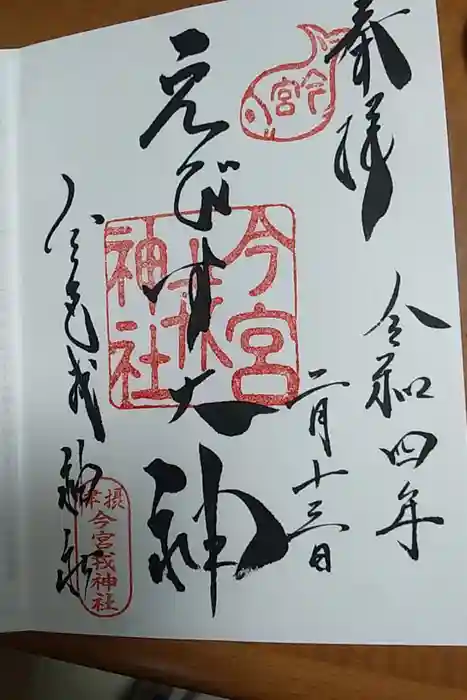 奉拝
令和四年
二月十三日
えびす大神
今宮戎神社
今宮
今宮
戎
神社
摂津
今宮戎神社